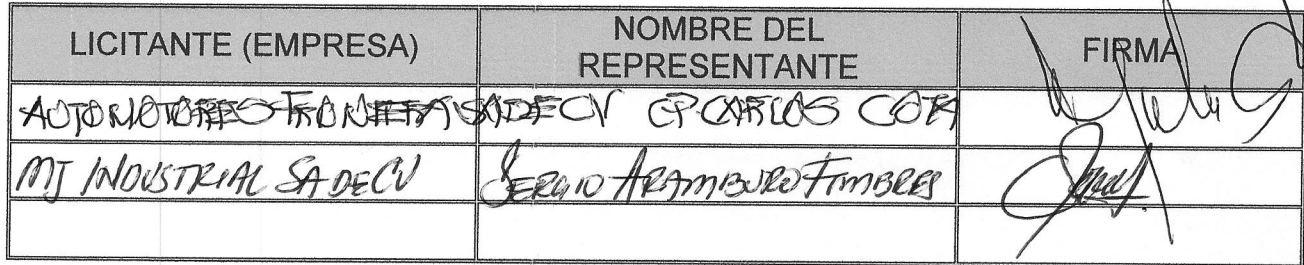 LICITANTE (EMPRESA) NOMBRE DEL REPRESENTANTE FIRMA
AUTOMOTORES FRONTERA SADECV CP CARLOS COTA
MJ INDUSTRIAL SA DE CV SERGIO ARAMBURO TIMBRES